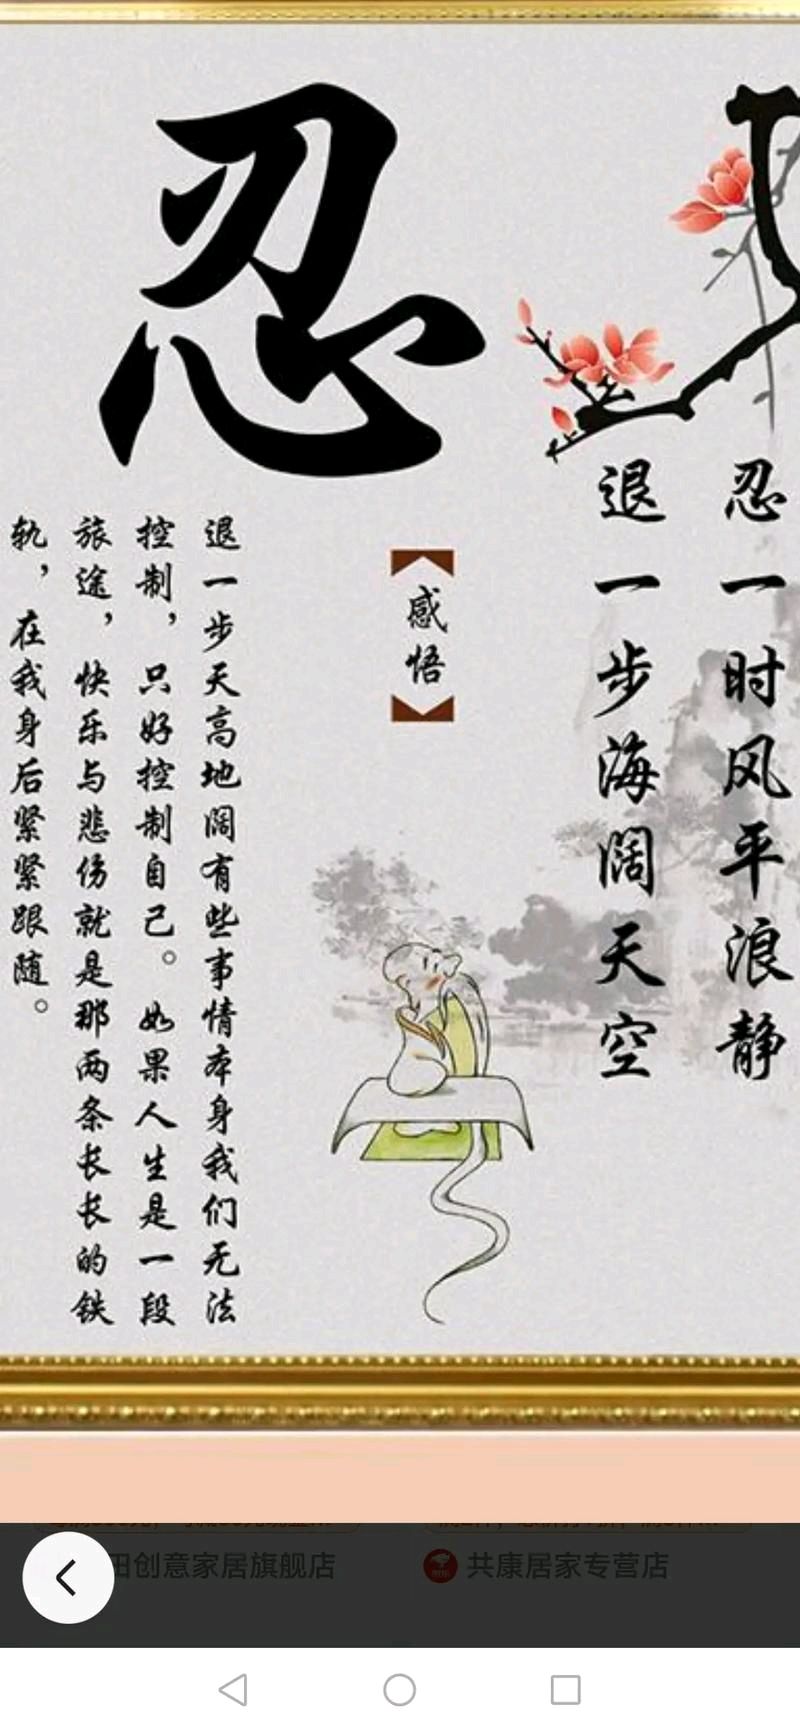 忍
忍一时风平浪静
退一步海阔天空
感悟
退一步天高地阔有些事情本身我们无法
控制，只好控制自己。如果人生是一段
旅途，快乐与悲伤就是那两条长长的铁
轨，在我身后紧紧跟随。
田创意家居旗舰店
共康居家专营店